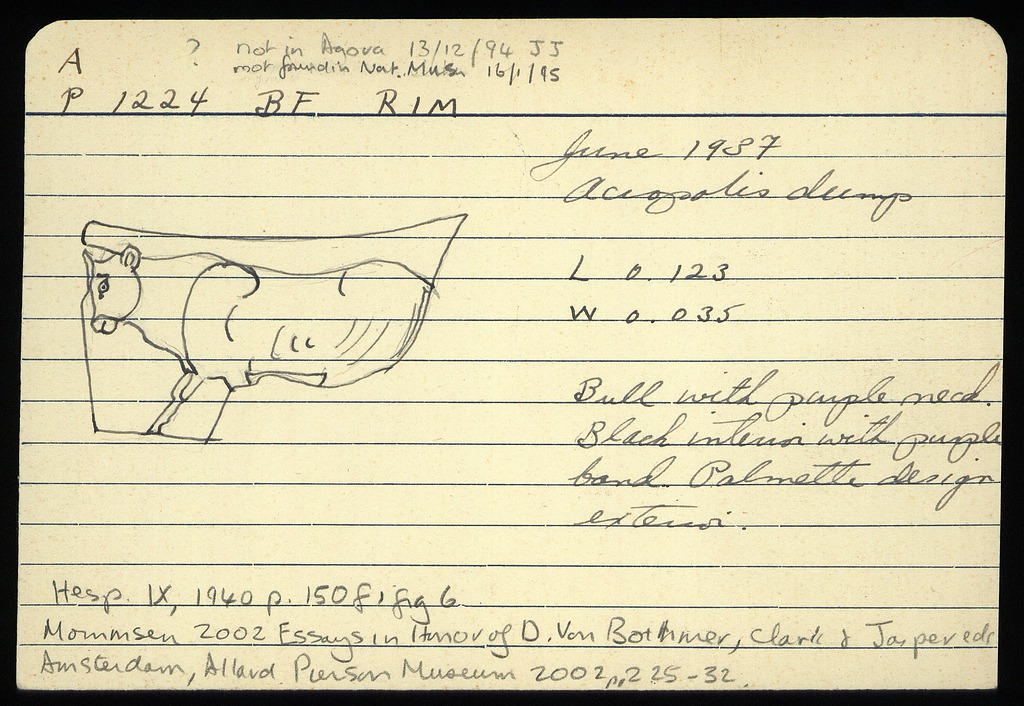 A
? not in Agora 13/12/94 JJ
not found in Nat. Mus. 16/1/95
P 1224 BF RIM
June 1937
Acropolis dump
L 0.123
W 0.035
Bull with purple neck.
Black interior with purple
band. Palmette design
exterior.
Hesp. IX, 1940 p. 150 f, fig 6
Mommsen 2002 Essays in Honor of D. Von Bothmer, Clark & Jasper eds
Amsterdam, Allard Pierson Museum 2002, p. 225-32.